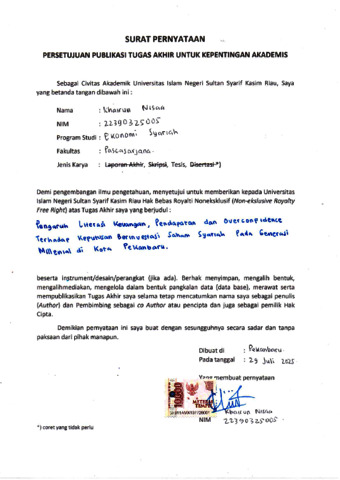 SURAT PERNYATAAN
PERSETUJUAN PUBLIKASI TUGAS AKHIR UNTUK KEPENTINGAN AKADEMIS
Sebagai Civitas Akademik Universitas Islam Negeri Sultan Syarif Kasim Riau, Saya
yang betanda tangan dibawah ini :
Nama : Khairun Nisan
NIM : 22390325005
Program Studi : Ekonomi Syariah
Fakultas : Pascasarjana
Jenis Karya : Laporan Akhir, Skripsi, Tesis, Disertasi *)
Demi pengembangan ilmu pengetahuan, menyetujui untuk memberikan kepada Universitas
Islam Negeri Sultan Syarif Kasim Riau Hak Bebas Royalti Noneksklusif (Non-ekslusive Royalty
Free Right) atas Tugas Akhir saya yang berjudul :
Pengaruh Literasi Keuangan, Pendapatan dan Overconfidence
Terhadap Keputusan Berinvestasi Saham Syariah Pada Generasi
Millenial di Kota Pekanbaru.
beserta instrument/desain/perangkat (jika ada). Berhak menyimpan, mengalih bentuk,
mengalihmediakan, mengelola dalam bentuk pangkalan data (data base), merawat serta
mempublikasikan Tugas Akhir saya selama tetap mencatumkan nama saya sebagai penulis
(Author) dan Pembimbing sebagai co Author atau pencipta dan juga sebagai pemilik Hak
Cipta.
Demikian pernyataan ini saya buat dengan sesungguhnya secara sadar dan tanpa
paksaan dari pihak manapun.
Dibuat di : Pekanbaru
Pada tanggal : 29 Juli 2025
Yang membuat pernyataan
10000
METERAI
TEMPEL
Khairun Nisan
NIM 22390325005
*) coret yang tidak perlu